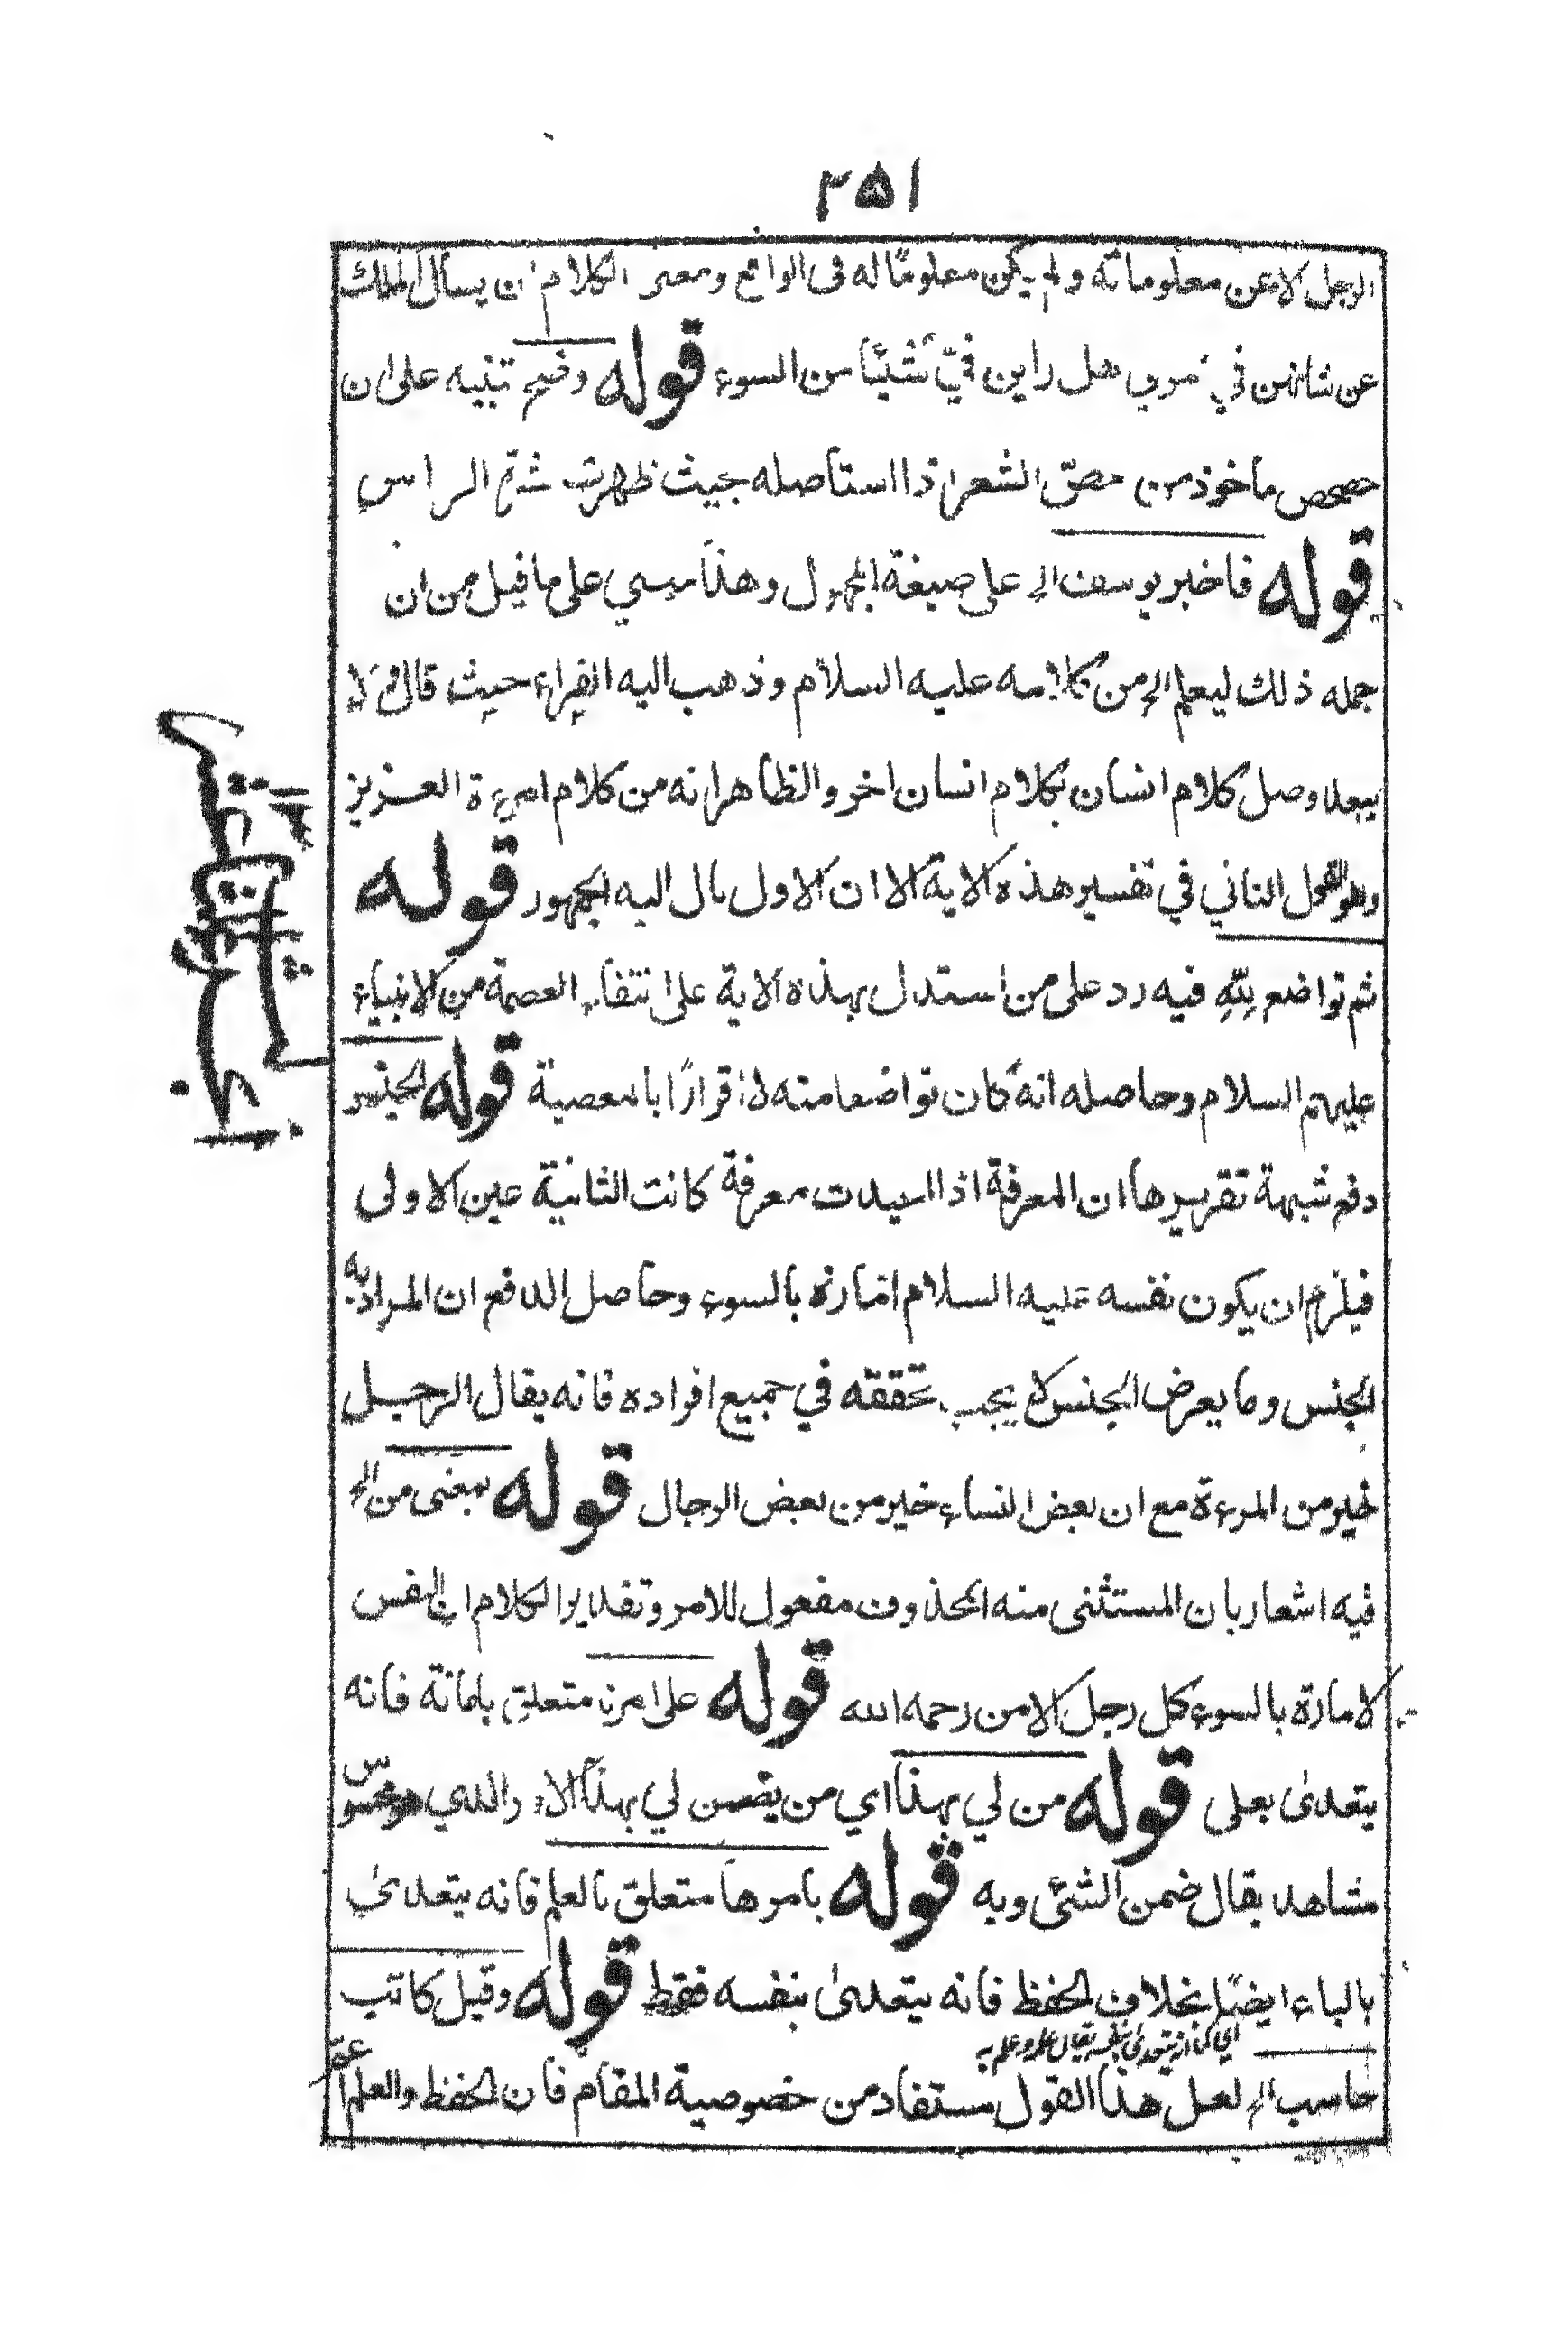 ٢٥١
الرجل لا عن معلوماته ولم يكن معلومًا له فى الواقع ومعنى الكلام ان يسأل الملك
عن شانهن في امري هل راين فيّ شيئًا من السوء قوله وضح تنبيه على ان
حصحص ماخوذ من حصّ الشعر اذا استاصله بحيث ظهرت بشرة الراس
قوله فاخبر يوسف الخ على صيغة المجهول وهذا مبني على ما قيل من ان
جمله ذلك ليعلم الخ من كلامه عليه السلام وذهب اليه الفراء حيث قال لا
يبعد وصل كلام انسان بكلام انسان اخر والظاهر انه من كلام امرءة العزيز
وهو القول الثاني في تفسير هذه الاية الا ان الاول مال اليه الجمهور قوله
ثم تواضع لله فيه رد على من استدل بهذه الاية على انتفاء العصمة من الانبياء
عليهم السلام وحاصله انه كان تواضعا منه لا اقرارًا بالمعصية قوله الجنس
دفع شبهة تقريرها ان المعرفة اذا اعيدت معرفة كانت الثانية عين الاولى
فيلزم ان يكون نفسه عليه السلام امّارة بالسوء وحاصل الدفع ان المراد به
الجنس وما يعرض الجنس لا يجب تحققه في جميع افراده فانه يقال الرجل
خير من المرءة مع ان بعض النساء خير من بعض الرجال قوله بمعنى من الخ
فيه اشعار بان المستثنى منه المحذوف مفعول للامر وتقدير الكلام ان النفس
لامارة بالسوء كل رجل الا من رحمه الله قوله على امرنا متعلق بامانة فانه
يتعدى بعلى قوله من لي بهذا اي من يضمن لي بهذا الاء والذي هو محسوس
مشاهد يقال ضمن الشئ وبه قوله بامرها متعلق بالعلم فانه يتعدى
بالباء ايضًا بخلاف الحفظ فانه يتعدى بنفسه فقط قوله وقيل كاتب
اي كما انه يتعدى بنفسه يقال علمه وعلم به
حاسب الخ لعل هذا القول مستفاد من خصوصية المقام فان الحفظ والعلم